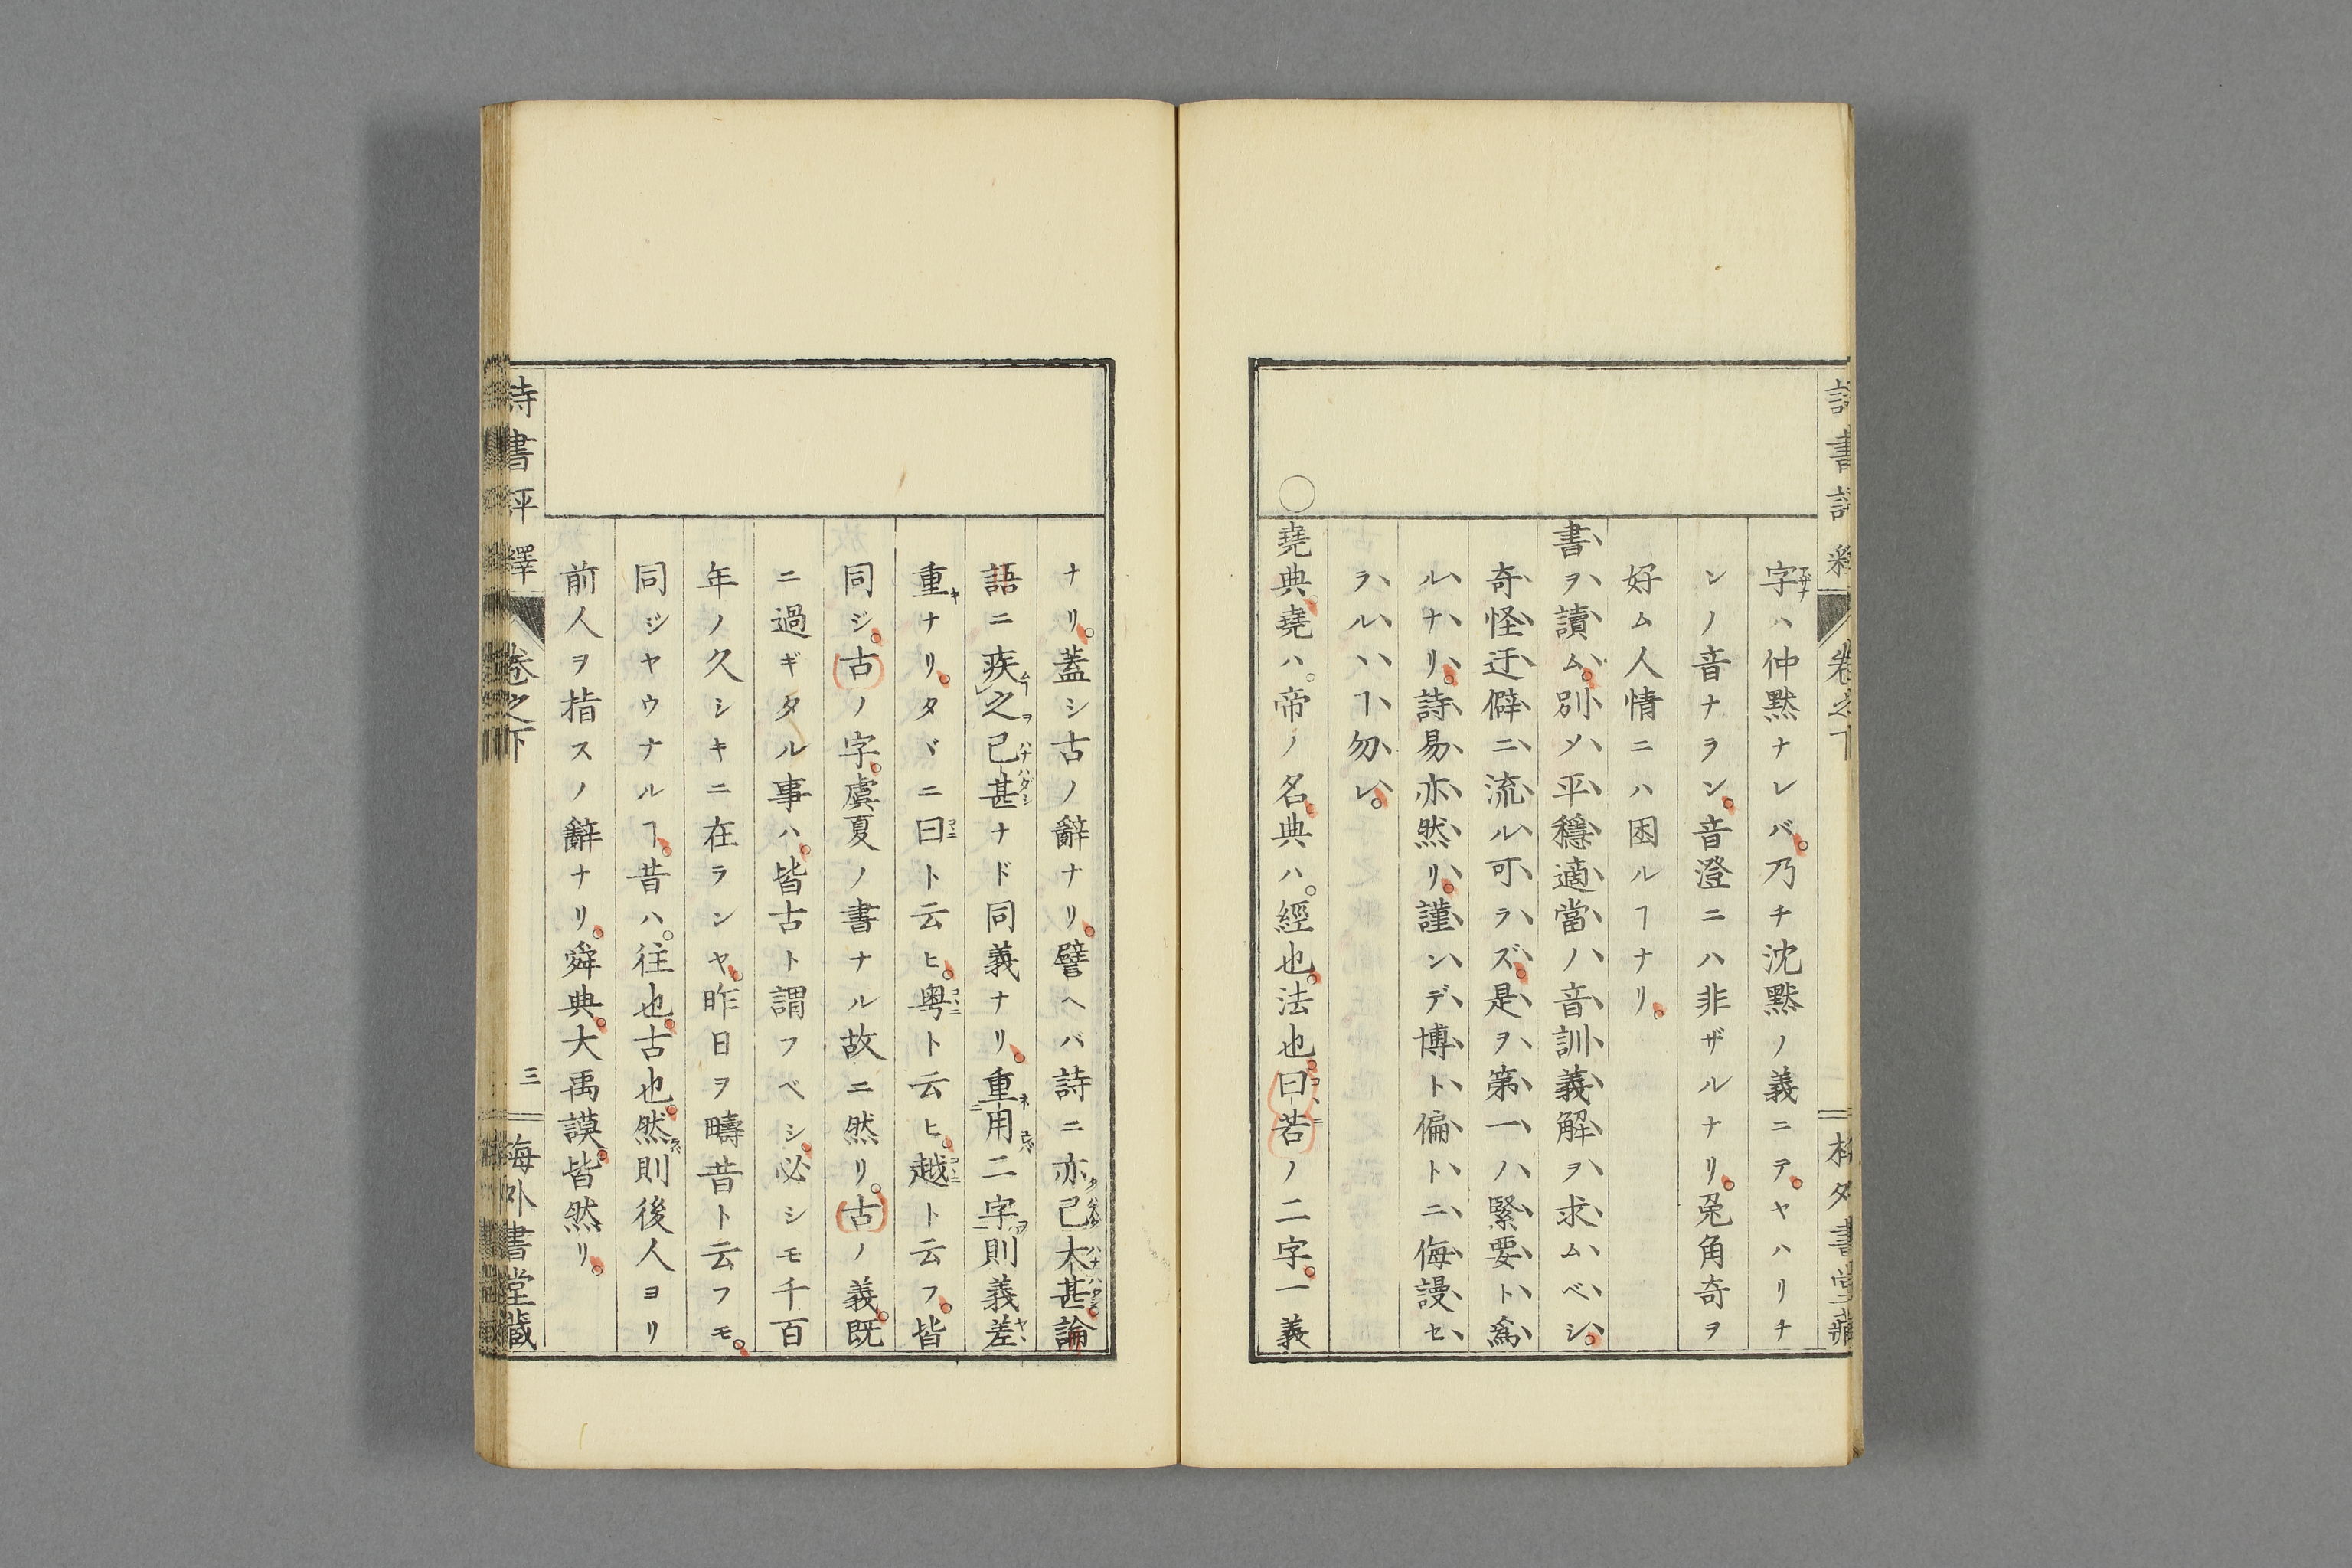 字ハ仲黙ナレバ。乃チ沈黙ノ義ニテ。ヤハリチ
ンノ音ナラン。音澄ニハ非ザルナリ。兎角奇ヲ
好ム人情ニハ困ルヿナリ。
書ヲ讀ム。別ソ平穩適當ノ音訓義解ヲ求ムベシ。
奇怪迂僻ニ流ル可ラズ。是ヲ第一ノ緊要ト爲
ルナリ。詩易亦然リ。謹ンデ博ト偏トニ侮謾セ
ラルヽヿ勿レ。
○堯典堯ハ。帝ノ名。典ハ。經也。法也。曰若ノ二字。一義
ナリ。蓋シ古ノ辭ナリ。譬ヘバ詩ニ亦已太甚。論
語ニ疾之已甚ナド同義ナリ。重用二字則義差
重ナリ。タヾニ曰ト云ヒ。粤ト云ヒ。越ト云フ。皆
同ジ。古ノ字。虞夏ノ書ナル故ニ然リ。古ノ義。既
ニ過ギタル事ハ。皆古ト謂フベシ。必シモ千百
年ノ久シキニ在ランヤ。昨日ヲ疇昔ト云フモ。
同ジヤウナルヿ。昔ハ。往也。古也。然則後人ヨリ
前人ヲ指スノ辭ナリ。舜典。大禹謨。皆然リ。
詩書評釋 卷之下 三 海外書堂藏